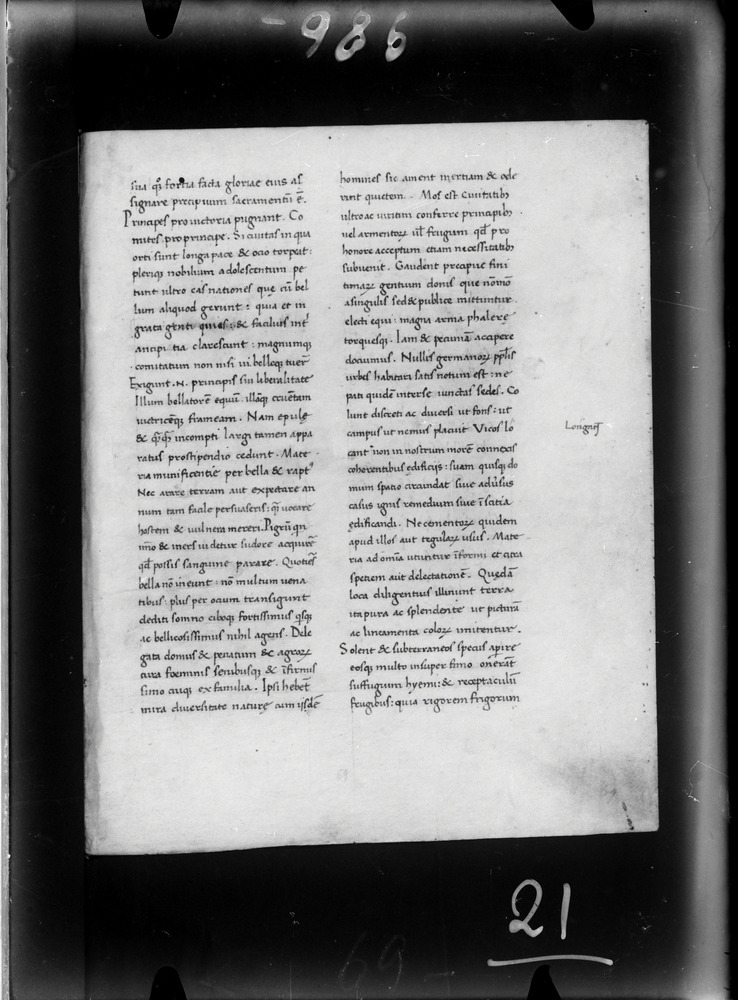 986
sua q̄ fortia facta gloriae eius as
signare precipuum sacramentū ē.
Principes pro uictoria pugnant. Co
mites pro principe. Si ciuitas in qua
orti sunt longa pace & ocio torpeat:
plerique nobilium adolescentum pe
tunt ultro eas nationes que cū bel
lum aliquod gerunt: quia et in
grata genti quies: & facilius int̄
ancipitia clarescunt: magnumq;
comitatum non nisi ui belloq; tuer̄
Exigunt .N. principis sui liberalitate
Illum bellatorē equū. illāq; cruentam
uictricēq; frameam. Nam epulę
& q̄q̄ incompti largi tamen appa
ratus pro stipendio cedunt. Mate
ria munificentie per bella & rapt⁹
Nec arare terram aut expectare an
num tam facile persuaseris: q̄ uocare
hostem & uulnera mereri. Pigrū qn
immo & iners uidetur sudore acquirē
qd possis sanguine parare. Quotiēs
bella nō ineunt: nō multum uena
tibus: plus per ocium transigunt
dediti somno ciboq; fortissimus q̄sq;
ac bellicosissimus nihil agens. Dele
gata domus & penatum & agroꝝ
cura foeminis senibusq; & īfirmis
simo cuiq; ex familia. Ipsi hebēt
mira diuersitate naturę cum iisdē
homines sic ament inertiam & ode
rint quietem. Mos est Ciuitatib;
ultro ac uiritim conferre principib;
uel armentoꝝ ul̄ frugum qd pro
honore acceptum etiam necessitatib;
subuenit. Gaudent precipue fini
timaꝝ gentium donis que nō mō
a singulis sed & publice mittuntur.
electi equi: magna arma phalerę
torquesq;. Iam & pecuniā accipere
docuimus. Nullis germanoꝝ pp̄lis
urbes habitari satis notum est: ne
pati quidē inter se iunctas sedes. Co
lunt discreti ac diuersi ut fons: ut
campus ut nemus placuit Vicos lo
cant non in nostrum morē connexis
coherentibus ędificiis: suam quisq; do
mum spatio circundat siue aduersus
casus ignis remedium siue īscitia
ędificandi. Ne cementoꝝ quidem
apud illos aut tegulaꝝ usus. Mate
ria ad omīa utuntur īformi et citra
speciem aut delectationē. Quędā
loca diligentius illinunt terra
ita pura ac splendente ut picturā
ac lineamenta coloꝝ imitentur.
Solent & subterraneos specus apire
eosq; multo insuper fimo onerāt
suffugium hyemi: & receptaculū
frugibus: quia rigorem frigorum
21